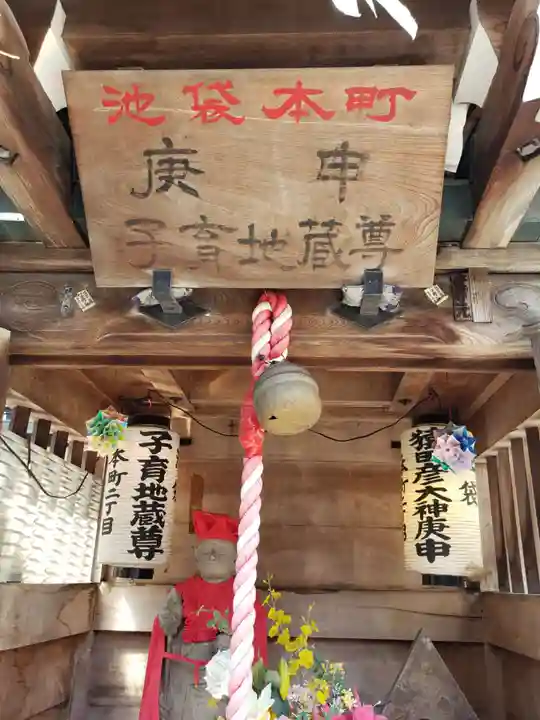 池袋本町
庚申
子育地蔵尊
子育地蔵尊
本町二丁目
猿田彦大神庚申
袋
本